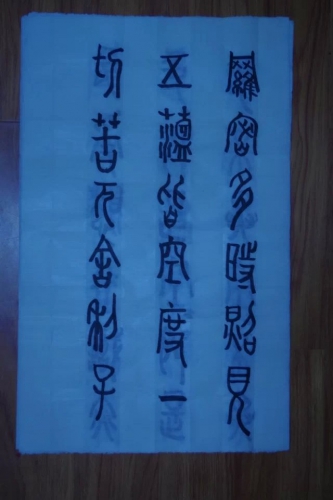 羅密多時照見
五蘊皆空度一
切苦厄舍利子